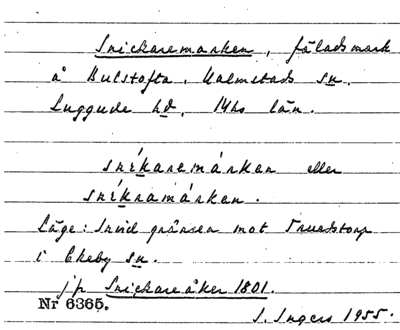 Snickaremarken, fäladsmark
å Duestofta, Malmstads sn.
Luggude hd, Mhs län.
sníkaremárken eller
sníkramárken.
Läge: Invid gränsen mot Truedstorp
i Ekeby sn.
jfr Snickareåker 1801.
Nr 6365.
I. Ingers 1955.